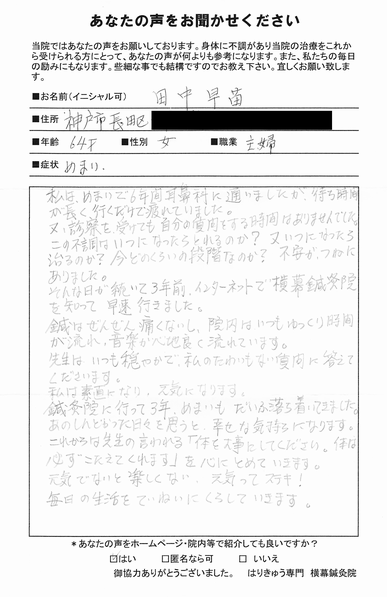 あなたの声をお聞かせください
当院ではあなたの声をお願いしております。身体に不調があり当院の治療をこれか
ら受けられる方にとって、あなたの声が何よりも参考になります。また、私たちの毎日
の励みにもなります。些細な事でも結構ですのでお教え下さい。宜しくお願い致しま
す。
■お名前(イニシャル可) 田中早苗
■住所 神戸市長田区
■年齢 64才 ■性別 女 ■職業 主婦
■症状 めまい、
私は、めまいで6年間耳鼻科に通いましたが、待ち時間
が長く行くだけで疲れていました。
又、診察を受けても自分の質問をする時間はありませんでした。
この不調はいつになったらとれるのか? 又いつになったら
治るのか? 今どのくらいの段階なのか? 不安が、つねに
ありました。
そんな日が続いて3年前、インターネットで横幕鍼灸院
を知って早速行きました。
鍼はぜんぜん痛くないし、院内はいつもゆっくり時間
が流れ、音楽が心地良く流れています。
先生はいつも穏やかで、私のたわいもない質問に答えて
くださいます。
私は素直になり、元気になります。
鍼灸院に行って3年、めまいもだいぶ落ち着いてきました。
あのしんどかった日々を思うと、幸せな気持ちになります。
これからは先生の言われる「体を大事にしてください。体は
必ずこたえてくれます」を心にとめていきます。
元気でないと楽しくない、元気ってステキ!
毎日の生活をていねいにくらしていきます。
*あなたの声をホームページ・院内等で紹介しても良いですか?
☑はい □匿名なら可 □ いいえ
御協力ありがとうございました。 はりきゅう専門 横幕鍼灸院